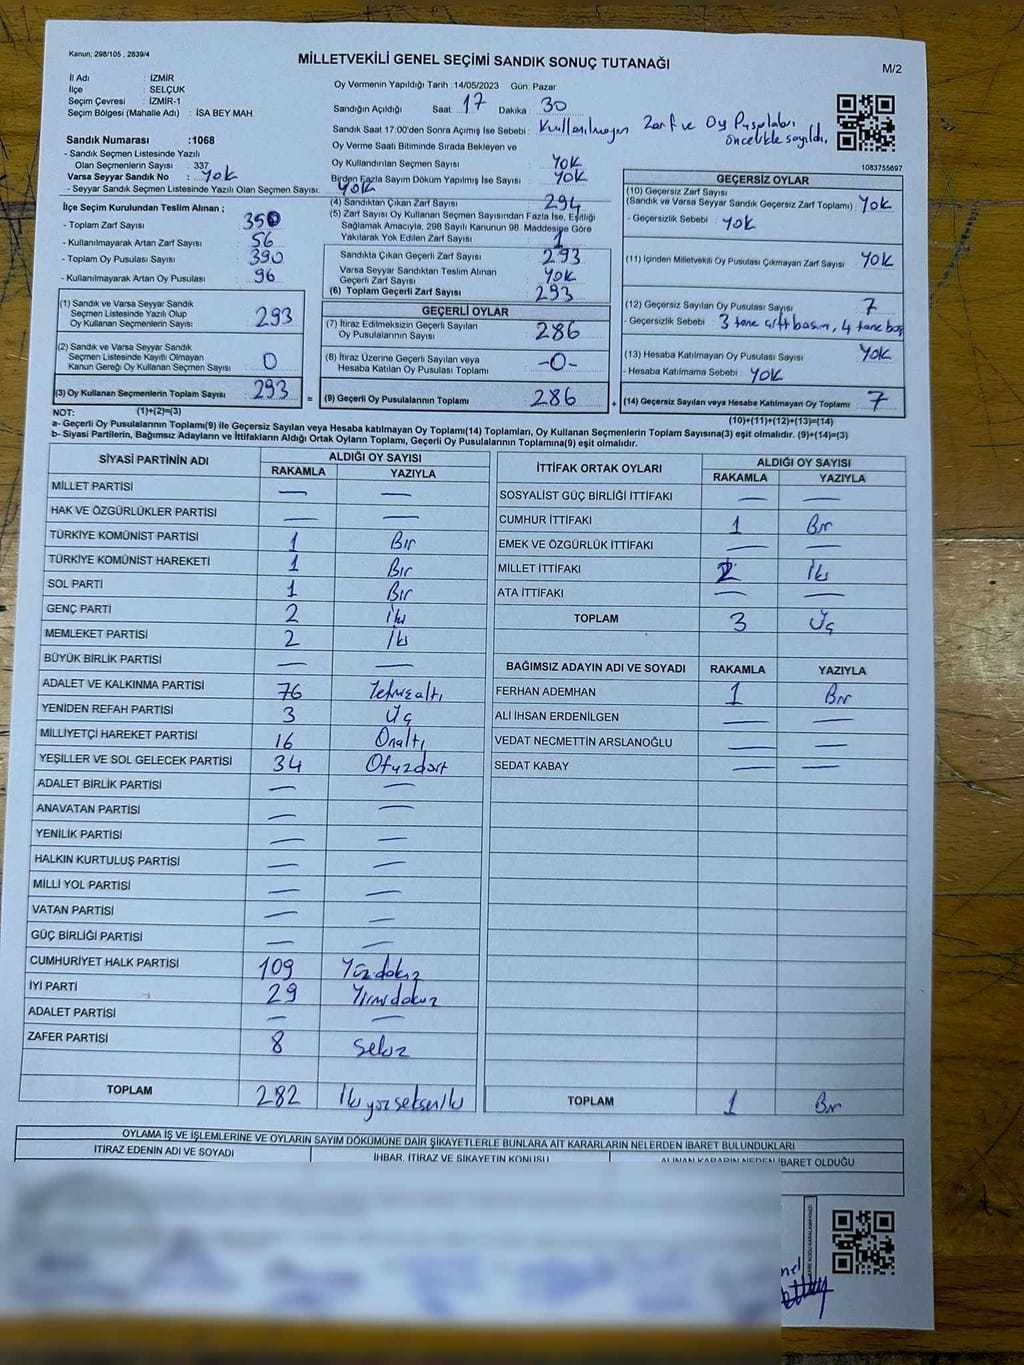 Kanun; 298/105 , 2839/4
MİLLETVEKİLİ GENEL SEÇİMİ SANDIK SONUÇ TUTANAĞI
M/2
İl Adı : İZMİR
İlçe : SELÇUK
Seçim Çevresi : İZMİR-1
Seçim Bölgesi (Mahalle Adı) : İSA BEY MAH.
Oy Vermenin Yapıldığı Tarih : 14/05/2023 Gün: Pazar
Sandığın Açıldığı Saat: 17 Dakika : 30
Sandık Saat 17.00'den Sonra Açımış İse Sebebi : Kullanılmayan Zarf ve Oy Pusulaları öncelikle sayıldı.
Oy Verme Saati Bitiminde Sırada Bekleyen ve
Oy Kullandırılan Seçmen Sayısı YOK
Birden Fazla Sayım Döküm Yapılmış İse Sayısı YOK
1083755697
Sandık Numarası :1068
- Sandık Seçmen Listesinde Yazılı
Olan Seçmenlerin Sayısı : 337
Varsa Seyyar Sandık No : YOK
- Seyyar Sandık Seçmen Listesinde Yazılı Olan Seçmen Sayısı: YOK
İlçe Seçim Kurulundan Teslim Alınan ;
- Toplam Zarf Sayısı 350
- Kullanılmayarak Artan Zarf Sayısı : 56
- Toplam Oy Pusulası Sayısı : 390
- Kullanılmayarak Artan Oy Pusulası : 96
(1) Sandık ve Varsa Seyyar Sandık
Seçmen Listesinde Yazılı Olup
Oy Kullanan Seçmenlerin Sayısı : 293
(2) Sandık ve Varsa Seyyar Sandık
Seçmen Listesinde Kayıtlı Olmayan
Kanun Gereği Oy Kullanan Seçmen Sayısı : 0
(3) Oy Kullanan Seçmenlerin Toplam Sayısı : 293
(1)+(2)=(3)
(4) Sandıktan Çıkan Zarf Sayısı : 294
(5) Zarf Sayısı Oy Kullanan Seçmen Sayısından Fazla İse, Eşitliği
Sağlamak Amacıyla, 298 Sayılı Kanunun 98. Maddesine Göre
Yakılarak Yok Edilen Zarf Sayısı : 1
Sandıkta Çıkan Geçerli Zarf Sayısı : 293
Varsa Seyyar Sandıktan Teslim Alınan
Geçerli Zarf Sayısı : YOK
(6) Toplam Geçerli Zarf Sayısı : 293
GEÇERLİ OYLAR
(7) İtiraz Edilmeksizin Geçerli Sayılan
Oy Pusulalarının Sayısı : 286
(8) İtiraz Üzerine Geçerli Sayılan veya
Hesaba Katılan Oy Pusulası Toplamı : -0-
= (9) Geçerli Oy Pusulalarının Toplamı : 286
GEÇERSİZ OYLAR
(10) Geçersiz Zarf Sayısı
(Sandık ve Varsa Seyyar Sandık Geçersiz Zarf Toplamı) : YOK
- Geçersizlik Sebebi : YOK
(11) İçinden Milletvekili Oy Pusulası Çıkmayan Zarf Sayısı : YOK
(12) Geçersiz Sayılan Oy Pusulası Sayısı : 7
- Geçersizlik Sebebi : 3 tane çift basım, 4 tane boş
(13) Hesaba Katılmayan Oy Pusulası Sayısı : YOK
- Hesaba Katılmama Sebebi : YOK
+ (14) Geçersiz Sayılan veya Hesaba Katılmayan Oy Toplamı : 7
(10)+(11)+(12)+(13)=(14)
NOT:
a- Geçerli Oy Pusulalarının Toplamı(9) ile Geçersiz Sayılan veya Hesaba Katılmayan oy Toplamı(14) Toplamları, Oy Kullanan Seçmenlerin Toplam Sayısına(3) eşit olmalıdır. (9)+(14)=(3)
b- Siyasi Partilerin, Bağımsız Adayların ve İttifakların Aldığı Ortak Oyların Toplamı, Geçerli Oy Pusulalarının Toplamına(9) eşit olmalıdır.
SİYASİ PARTİNİN ADI ALDIĞI OY SAYISI
RAKAMLA YAZIYLA
MİLLET PARTİSİ — —
HAK VE ÖZGÜRLÜKLER PARTİSİ — —
TÜRKİYE KOMÜNİST PARTİSİ 1 Bir
TÜRKİYE KOMÜNİST HAREKETİ 1 Bir
SOL PARTİ 1 Bir
GENÇ PARTİ 2 İki
MEMLEKET PARTİSİ 2 İki
BÜYÜK BİRLİK PARTİSİ — —
ADALET VE KALKINMA PARTİSİ 76 Yetmişaltı
YENİDEN REFAH PARTİSİ 3 Üç
MİLLİYETÇİ HAREKET PARTİSİ 16 Onaltı
YEŞİLLER VE SOL GELECEK PARTİSİ 34 Otuzdört
ADALET BİRLİK PARTİSİ — —
ANAVATAN PARTİSİ — —
YENİLİK PARTİSİ — —
HALKIN KURTULUŞ PARTİSİ — —
MİLLİ YOL PARTİSİ — —
VATAN PARTİSİ — —
GÜÇ BİRLİĞİ PARTİSİ — —
CUMHURİYET HALK PARTİSİ 109 Yüzdokuz
İYİ PARTİ 29 Yirmidokuz
ADALET PARTİSİ — —
ZAFER PARTİSİ 8 Sekiz
TOPLAM 282 İkiyüzsekseniki
İTTİFAK ORTAK OYLARI ALDIĞI OY SAYISI
RAKAMLA YAZIYLA
SOSYALİST GÜÇ BİRLİĞİ İTTİFAKI — —
CUMHUR İTTİFAKI 1 Bir
EMEK VE ÖZGÜRLÜK İTTİFAKI — —
MİLLET İTTİFAKI 2 İki
ATA İTTİFAKI — —
TOPLAM 3 Üç
BAĞIMSIZ ADAYIN ADI VE SOYADI RAKAMLA YAZIYLA
FERHAN ADEMHAN 1 Bir
ALİ İHSAN ERDENİLGEN — —
VEDAT NECMETTİN ARSLANOĞLU — —
SEDAT KABAY — —
TOPLAM 1 Bir
OYLAMA İŞ VE İŞLEMLERİNE VE OYLARIN SAYIM DÖKÜMÜNE DAİR ŞİKAYETLERLE BUNLARA AİT KARARLARIN NELERDEN İBARET BULUNDUKLARI
İTİRAZ EDENİN ADI VE SOYADI İHBAR, İTİRAZ VE ŞİKAYETİN KONUSU ALINAN KARARIN NEDEN İBARET OLDUĞU